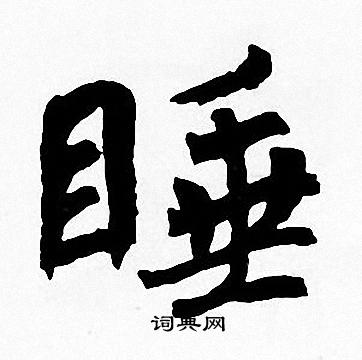 睡
词典网